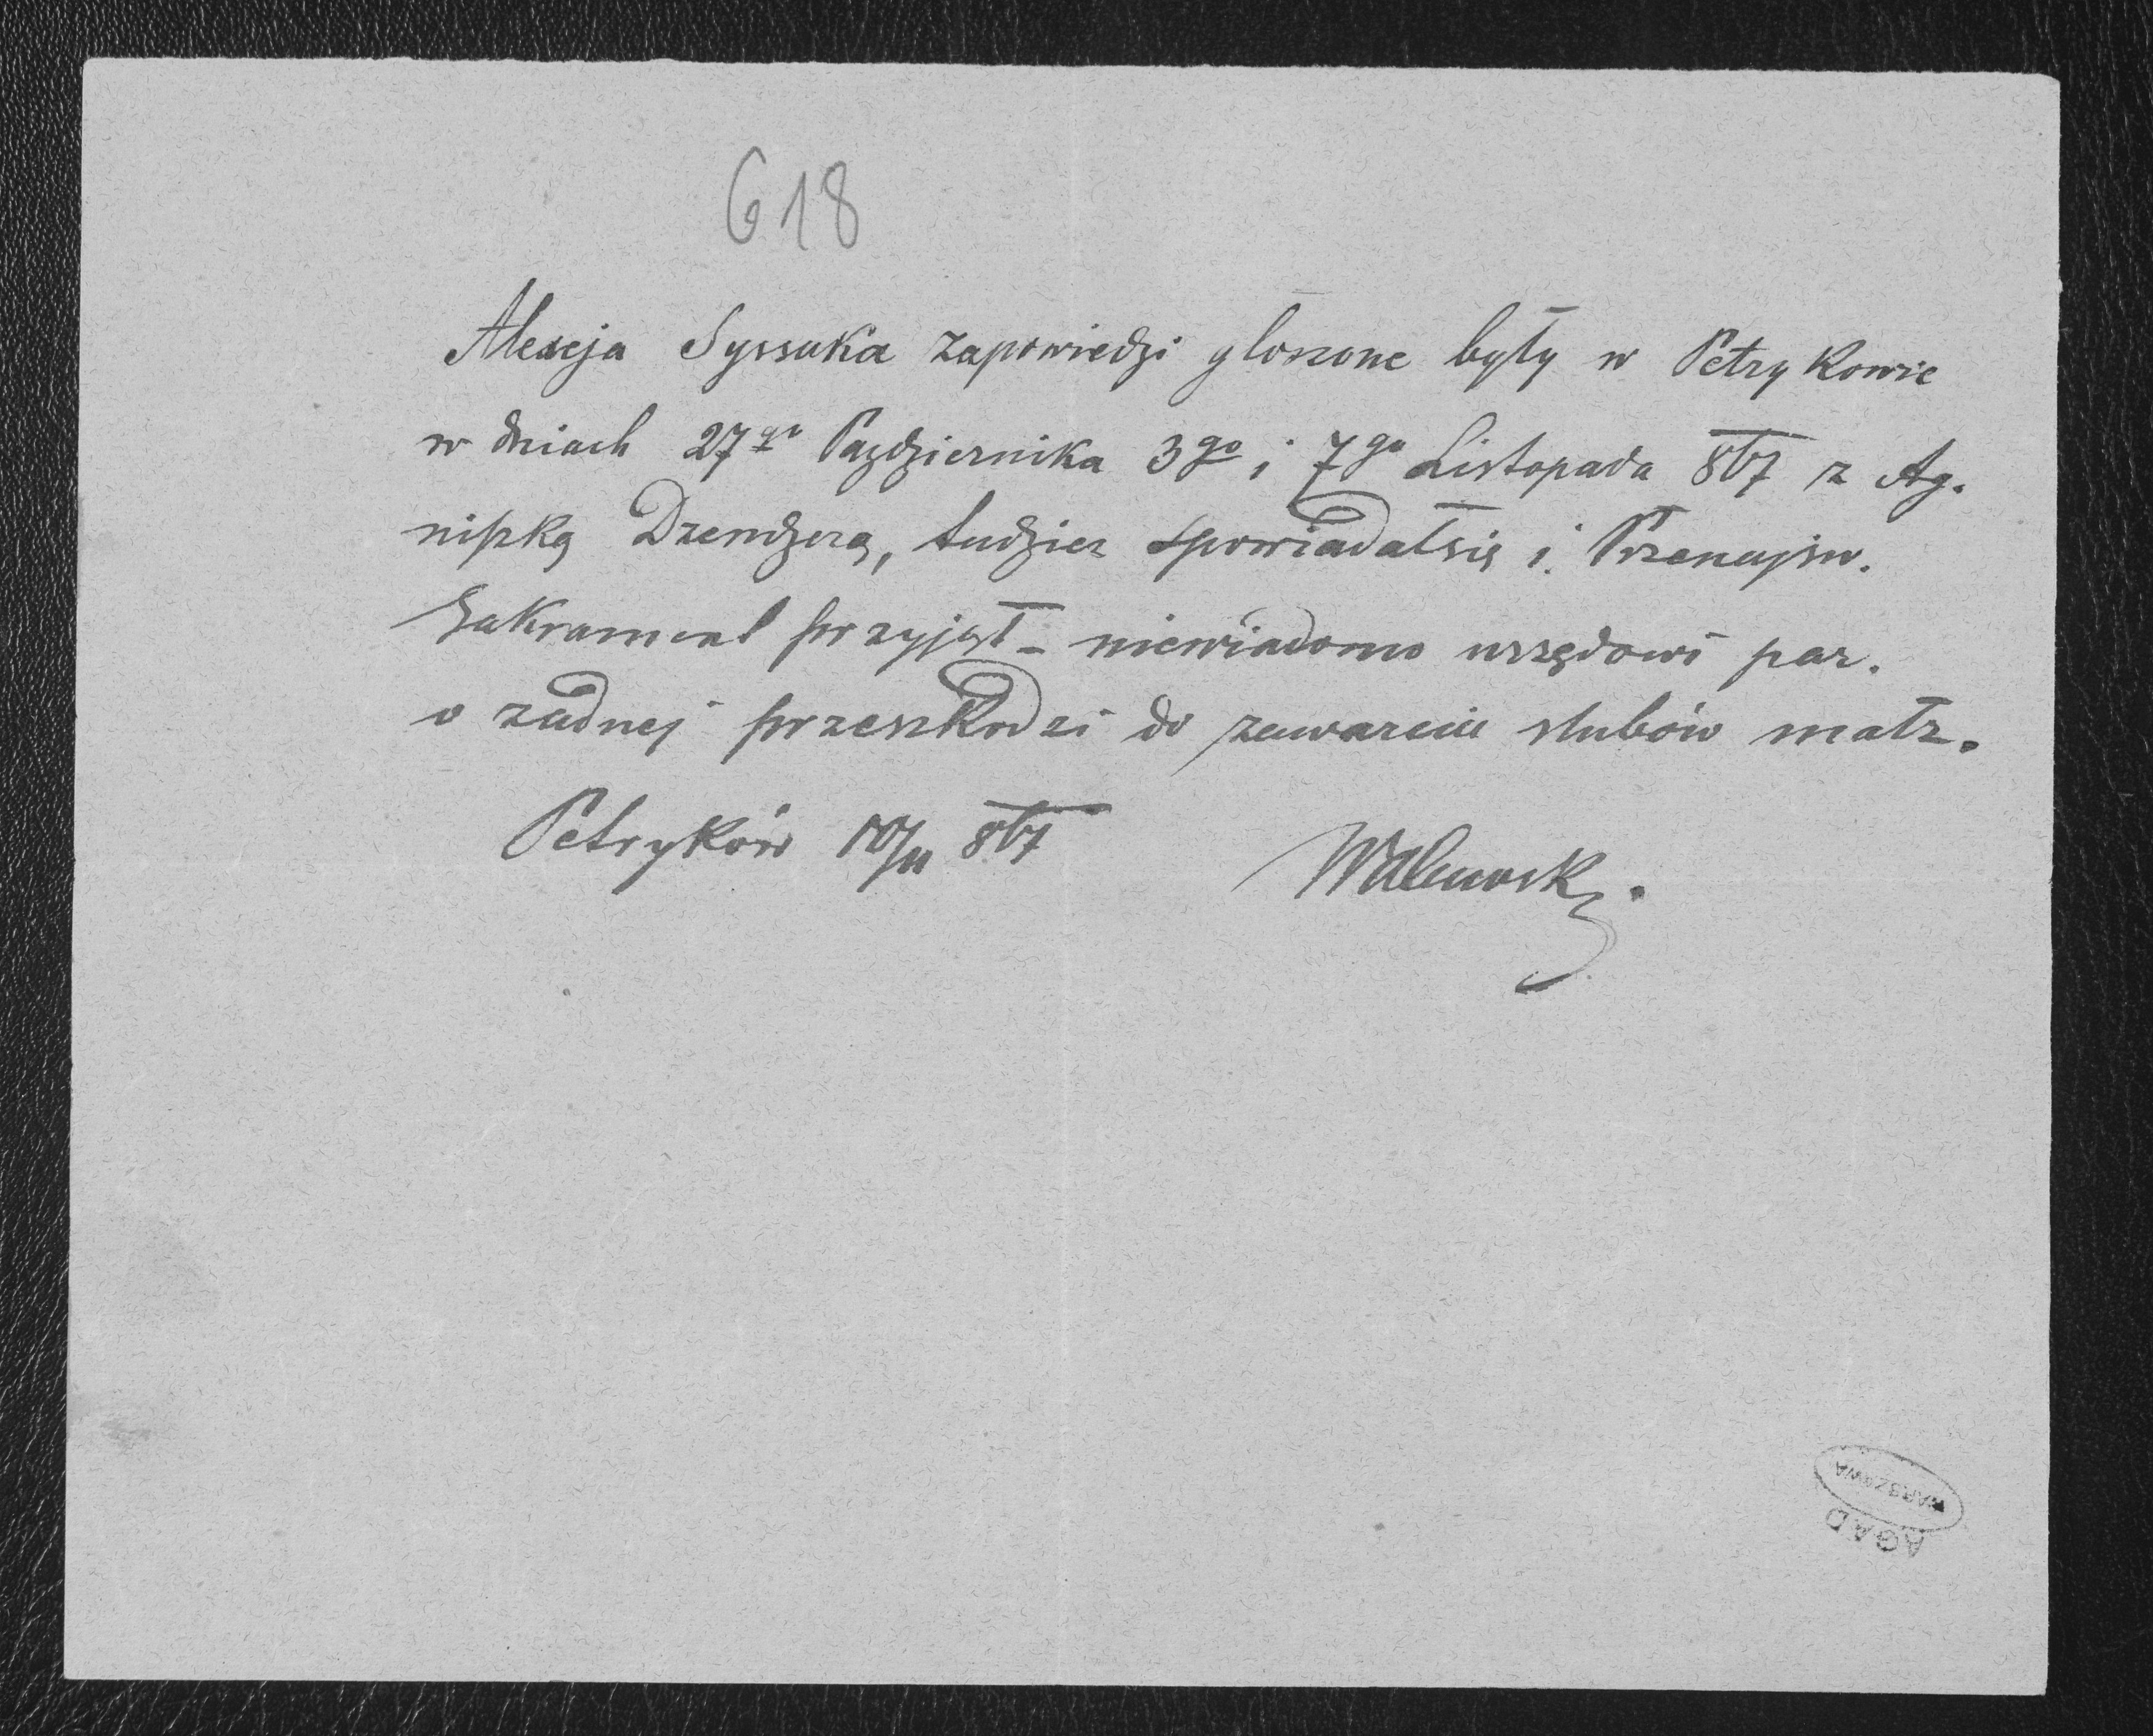 618
Alexeja Syssuka zapowiedzi głoszone były w Petrykowie
w dniach 27go Pazdziernika 3go i 7go Listopada 867 z Ag-
niszką Dzendzerą, tudziez spowiadał się i Przenajśw.
Sakrament przyjął - niewiadomo urzędowi par.
o zadnej przeszkodzi do zawarcia slubów małz.
Petryków 10/11 867
AGAD
WARSZAWA